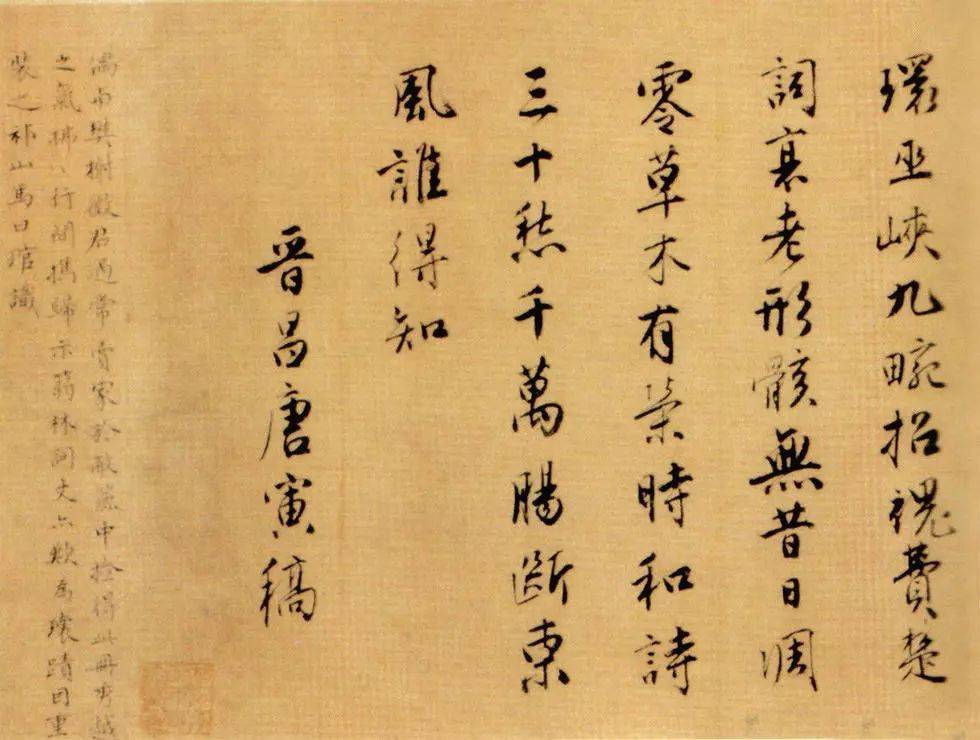 環巫峽九畹招魂費楚
詞衰老形骸無昔日凋
零草木有榮時和詩
三十愁千萬腸斷東
風誰得知
晉昌唐寅稿
樊榭徵君過常賣家於敝簏中撿得此冊秀越
之氣拂行間攜歸示蒻林詞丈亦歎為瓌蹟因重
裝之祁山馬曰琯識